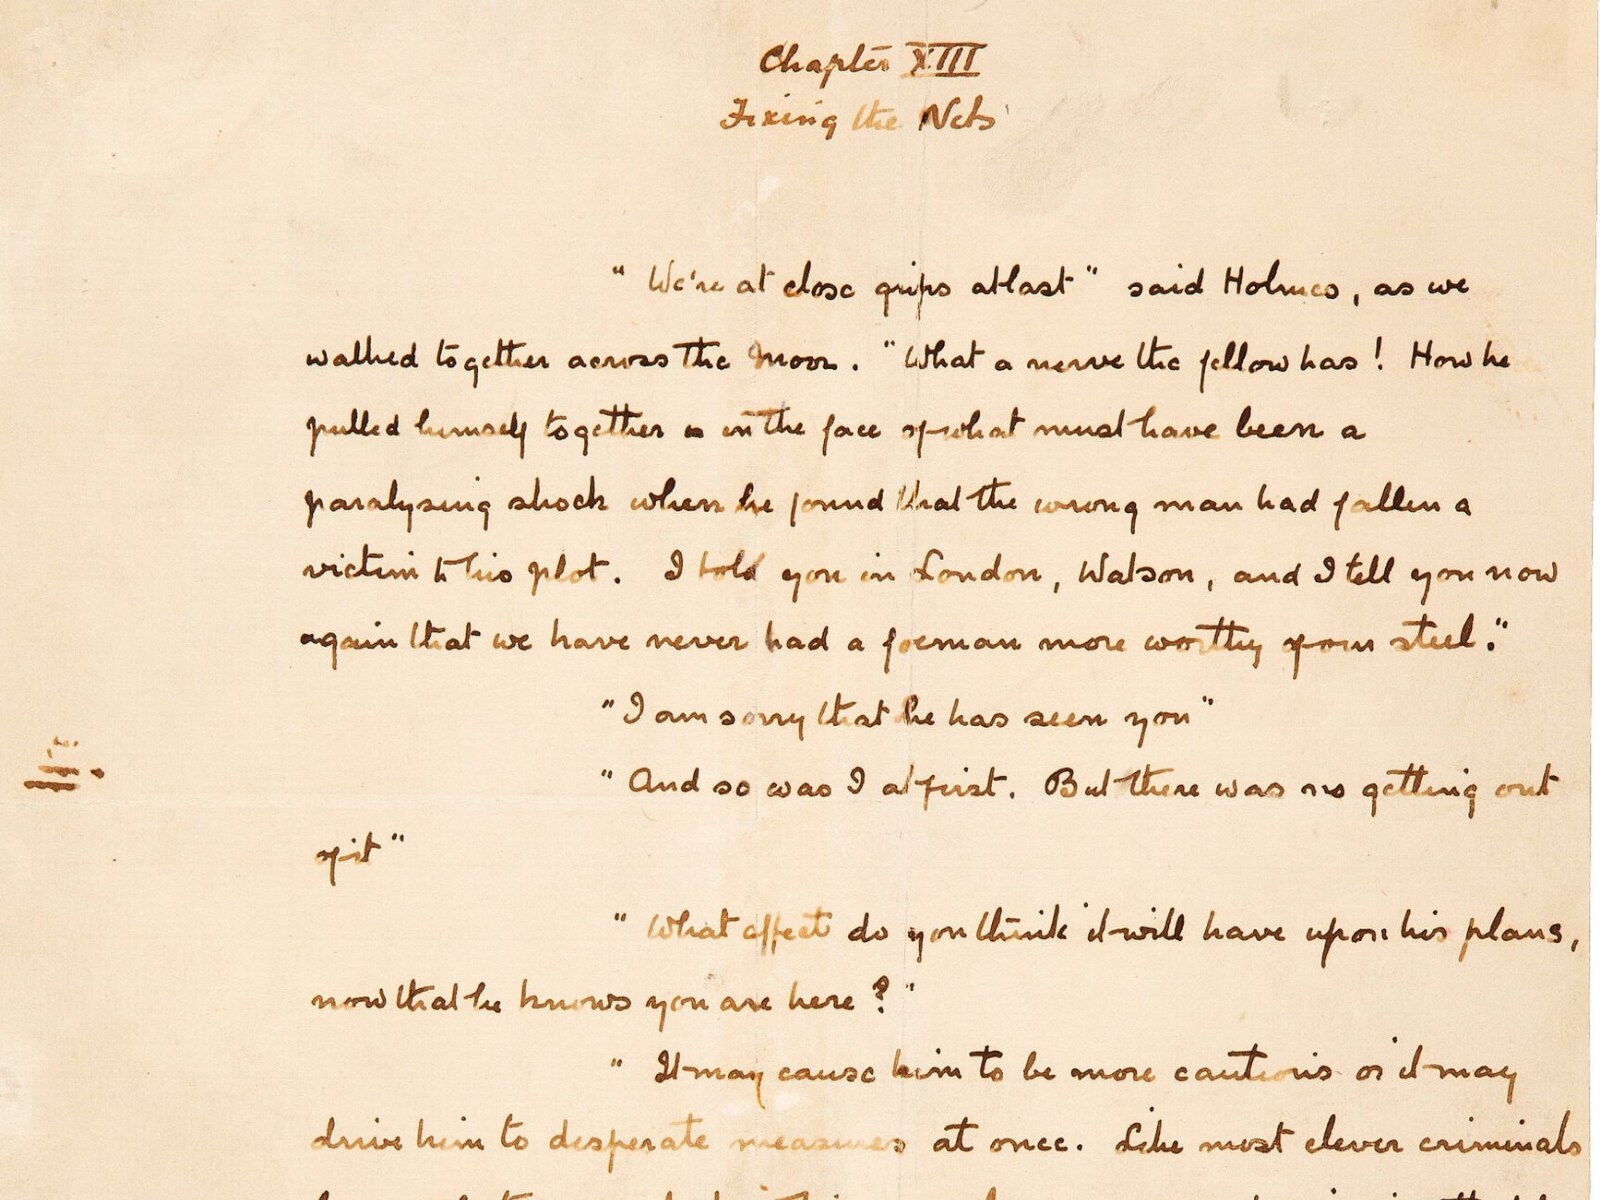 Chapter XIII
Fixing the Nets
" We're at close grips at last " said Holmes, as we
walked together across the Moor. " What a nerve the fellow has! How he
pulled himself together in the face of what must have been a
paralysing shock when he found that the wrong man had fallen a
victim to his plot. I told you in London, Watson, and I tell you now
again that we have never had a foeman more worthy of our steel."
" I am sorry that he has seen you "
" And so was I at first. But there was no getting out
of it "
" What effect do you think it will have upon his plans,
now that he knows you are here? "
" It may cause him to be more cautious or it may
drive him to desperate measures at once. Like most clever criminals